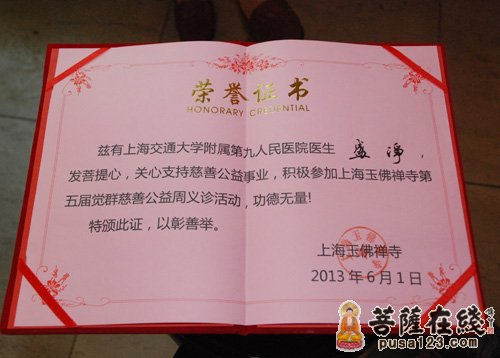 荣誉证书
HONORARY CREDENTIAL
兹有上海交通大学附属第九人民医院医生 盛净，
发菩提心，关心支持慈善公益事业，积极参加上海玉佛禅寺第
五届觉群慈善公益周义诊活动，功德无量!
特颁此证，以彰善举。
上海玉佛禅寺
2013 年 6 月 1 日
菩薩在綫
pusa123.com